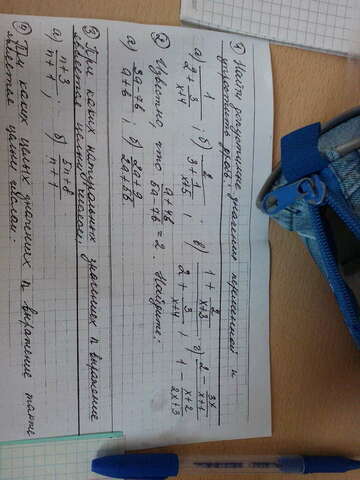 ① Найти допустимые значения переменной и
упростить дробь:
а) 1/(2 + 3/(x+4)) ; б) 2/(3 + 1/(x+5)) ; в) (1 + 2/(x+3))/(2 + 3/(x+4)) ; г) (2 − 3x/(x+1))/(1 − (x+2)/(2x+3))
② Известно, что = 2. Найдите:
а) б)
③ При каких натуральных значениях n выражение
является целым числом:
а) (n+3)/(n+1) ; б) (5n+8)/(n+1)
④ При каких целых значениях n выражение
является целым числом.